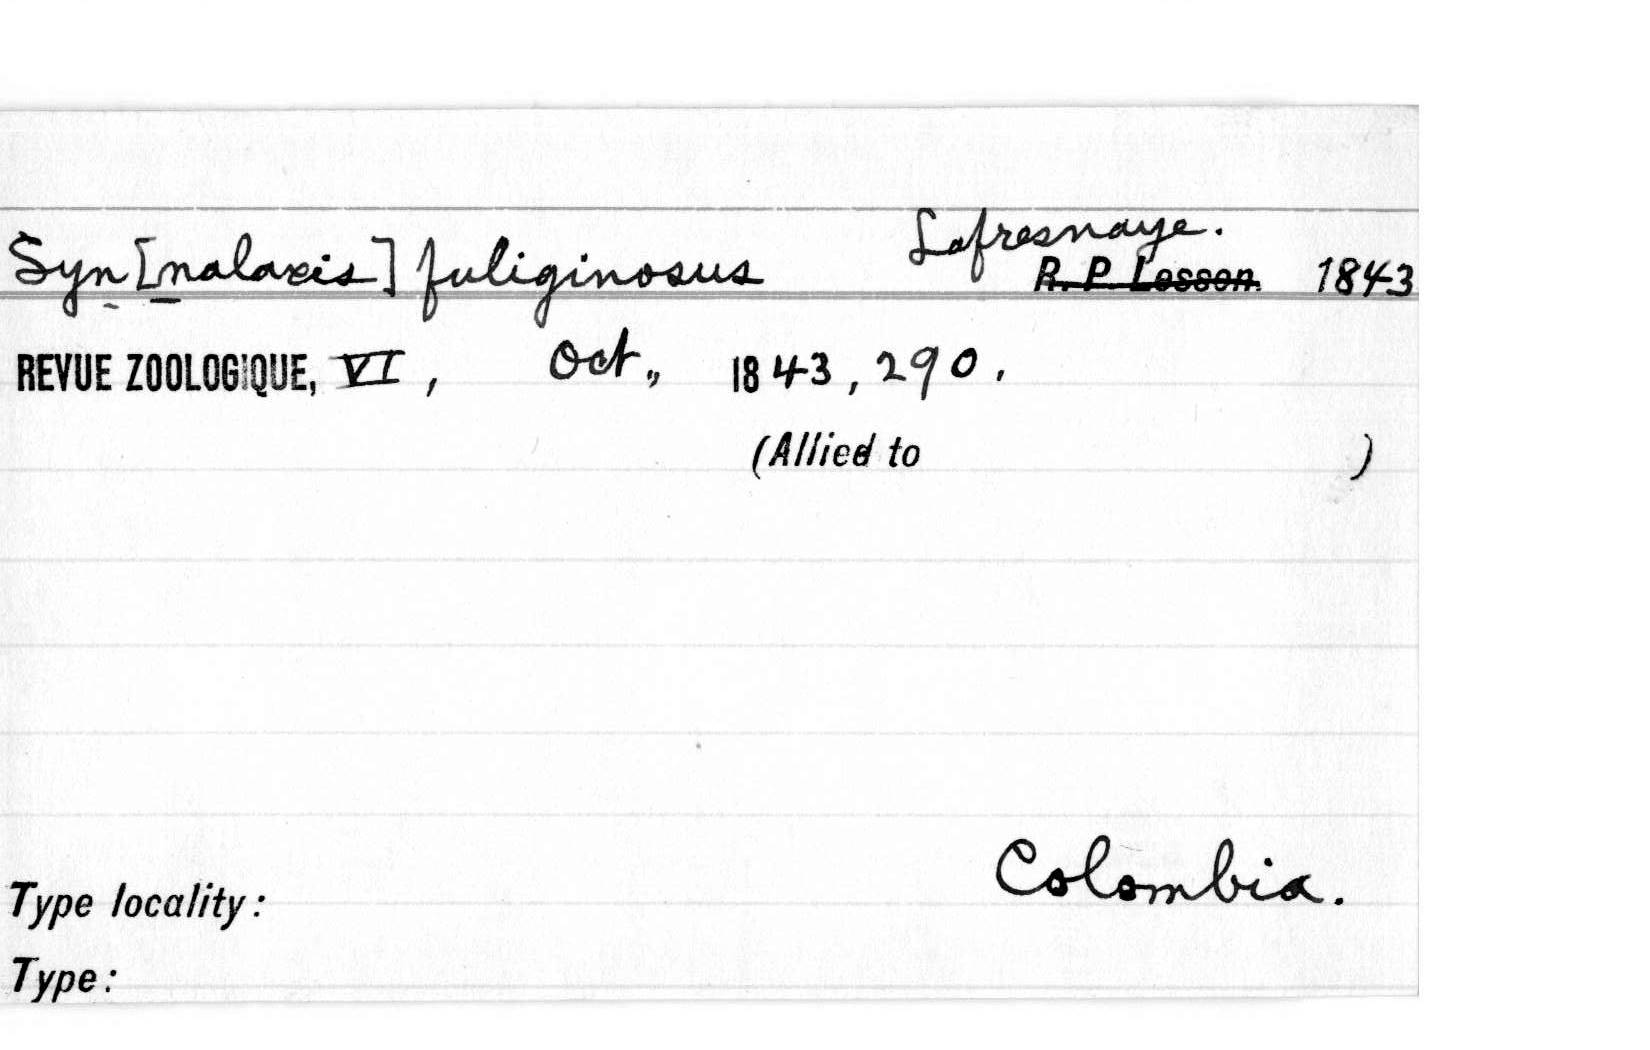 Syn[nalaxis] fuliginosus Lafresnaye.
R. P. Lesson. 1843
REVUE ZOOLOGIQUE, VI, Oct., 1843, 290.
(Allied to )
Colombia.
Type locality:
Type: